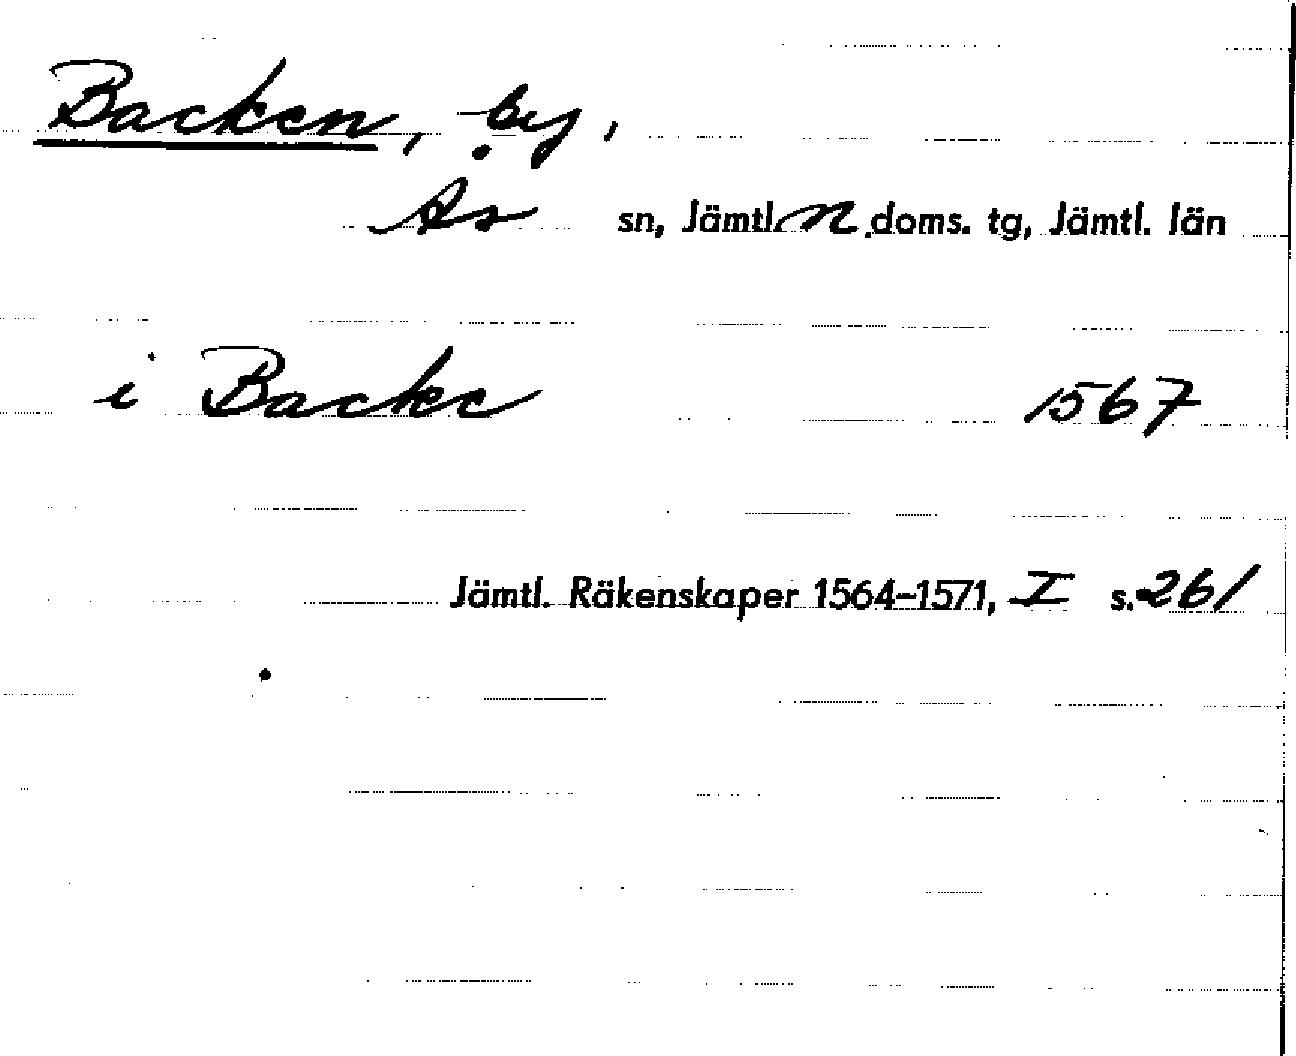 Backen, by,
Ås sn, Jämtl. n. doms. tg, Jämtl. län
i Backe 1567
Jämtl. Räkenskaper 1564–1571, I s. 261